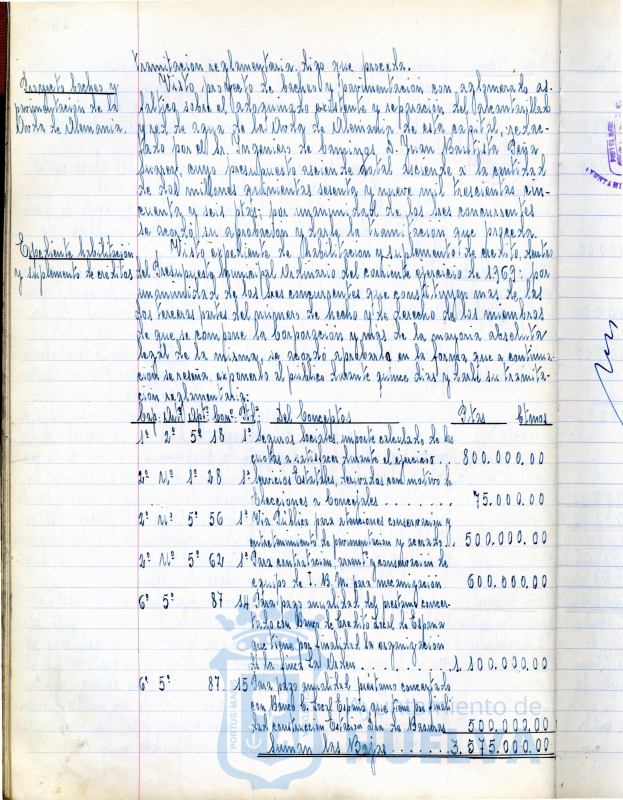 tramitacion reglamentaria. digo que proceda.
Proyecto baches y
pavimentacion de la
Avda de Alemania.
Visto, proyecto de bacheo y pavimentación con aglomerado as-
faltico sobre el adoquinado existente y reparacion del alcantarillado
y red de agua de la Avda de Alemania de esta capital, redac-
tado por el Sr. Ingeniero de Caminos D. Juan Bautista Peña
Suarez, cuyo presupuesto asciende total asciende a la cantidad
de dos millones quinientas sesenta y nueve mil trescientas cin-
cuenta y seis ptas; por unanimidad de los Sres concurrentes
se acordó su aprobacion y darle la tramitacion que proceda.
Expediente habilitacion
y suplemento de creditos
Visto expediente de Habilitacion y suplemento de credito, dentro
del Presupuesto Municipal Ordinario del corriente ejercicio de 1969: por
unanimidad de los Sres concurrentes que constituyen mas de las
dos terceras partes del numero de hecho y de derecho de los miembros
de que se compone la Corporación y más de la mayoria absoluta
legal de la misma, se acordó aprobarlo en la forma que a continua-
ción se reseña, exponerlo al público durante quince dias y darle su tramita-
ción reglamentaria:
Cap: Artº Con: Del Conceptos Ptas Ctmos
1º 2º 5º 18 1º Seguros Sociales, importe calculado de las
cuotas a satisfacer durante el ejercicio. 800.000.00
2º Uº 1º 28 1º Servicios Estatales, derivados con motivo de
Elecciones a Concejales . . . . . . . . 75.000.00
2º Uº 5º 56 1º Via Pública para atenciones conservacion y
entretenimiento de pavimentacion y acerado 500.000,00
2º Uº 5º 62 1º Para contratacion, y conservación de
equipo de I. B. M. para mecanización 600.000,00
6º 5º 87 14 Para pago anualidad del prestamo concer-
tado con Banco de Credito Local de España
que tiene por finalidad la organizacion
de la finca La Orden . . . . . . . 1.100.000.00
6º 5º 87. 15 Para pago anualidad préstamo concertado
con Banco C. Local España que tiene por finali-
dad construccion Estacion de Basuras 500.000,00
Suman las Bajas . . . . . . 3.575.000.00
PORTUS MARIS
Ayuntamiento de
HUELVA